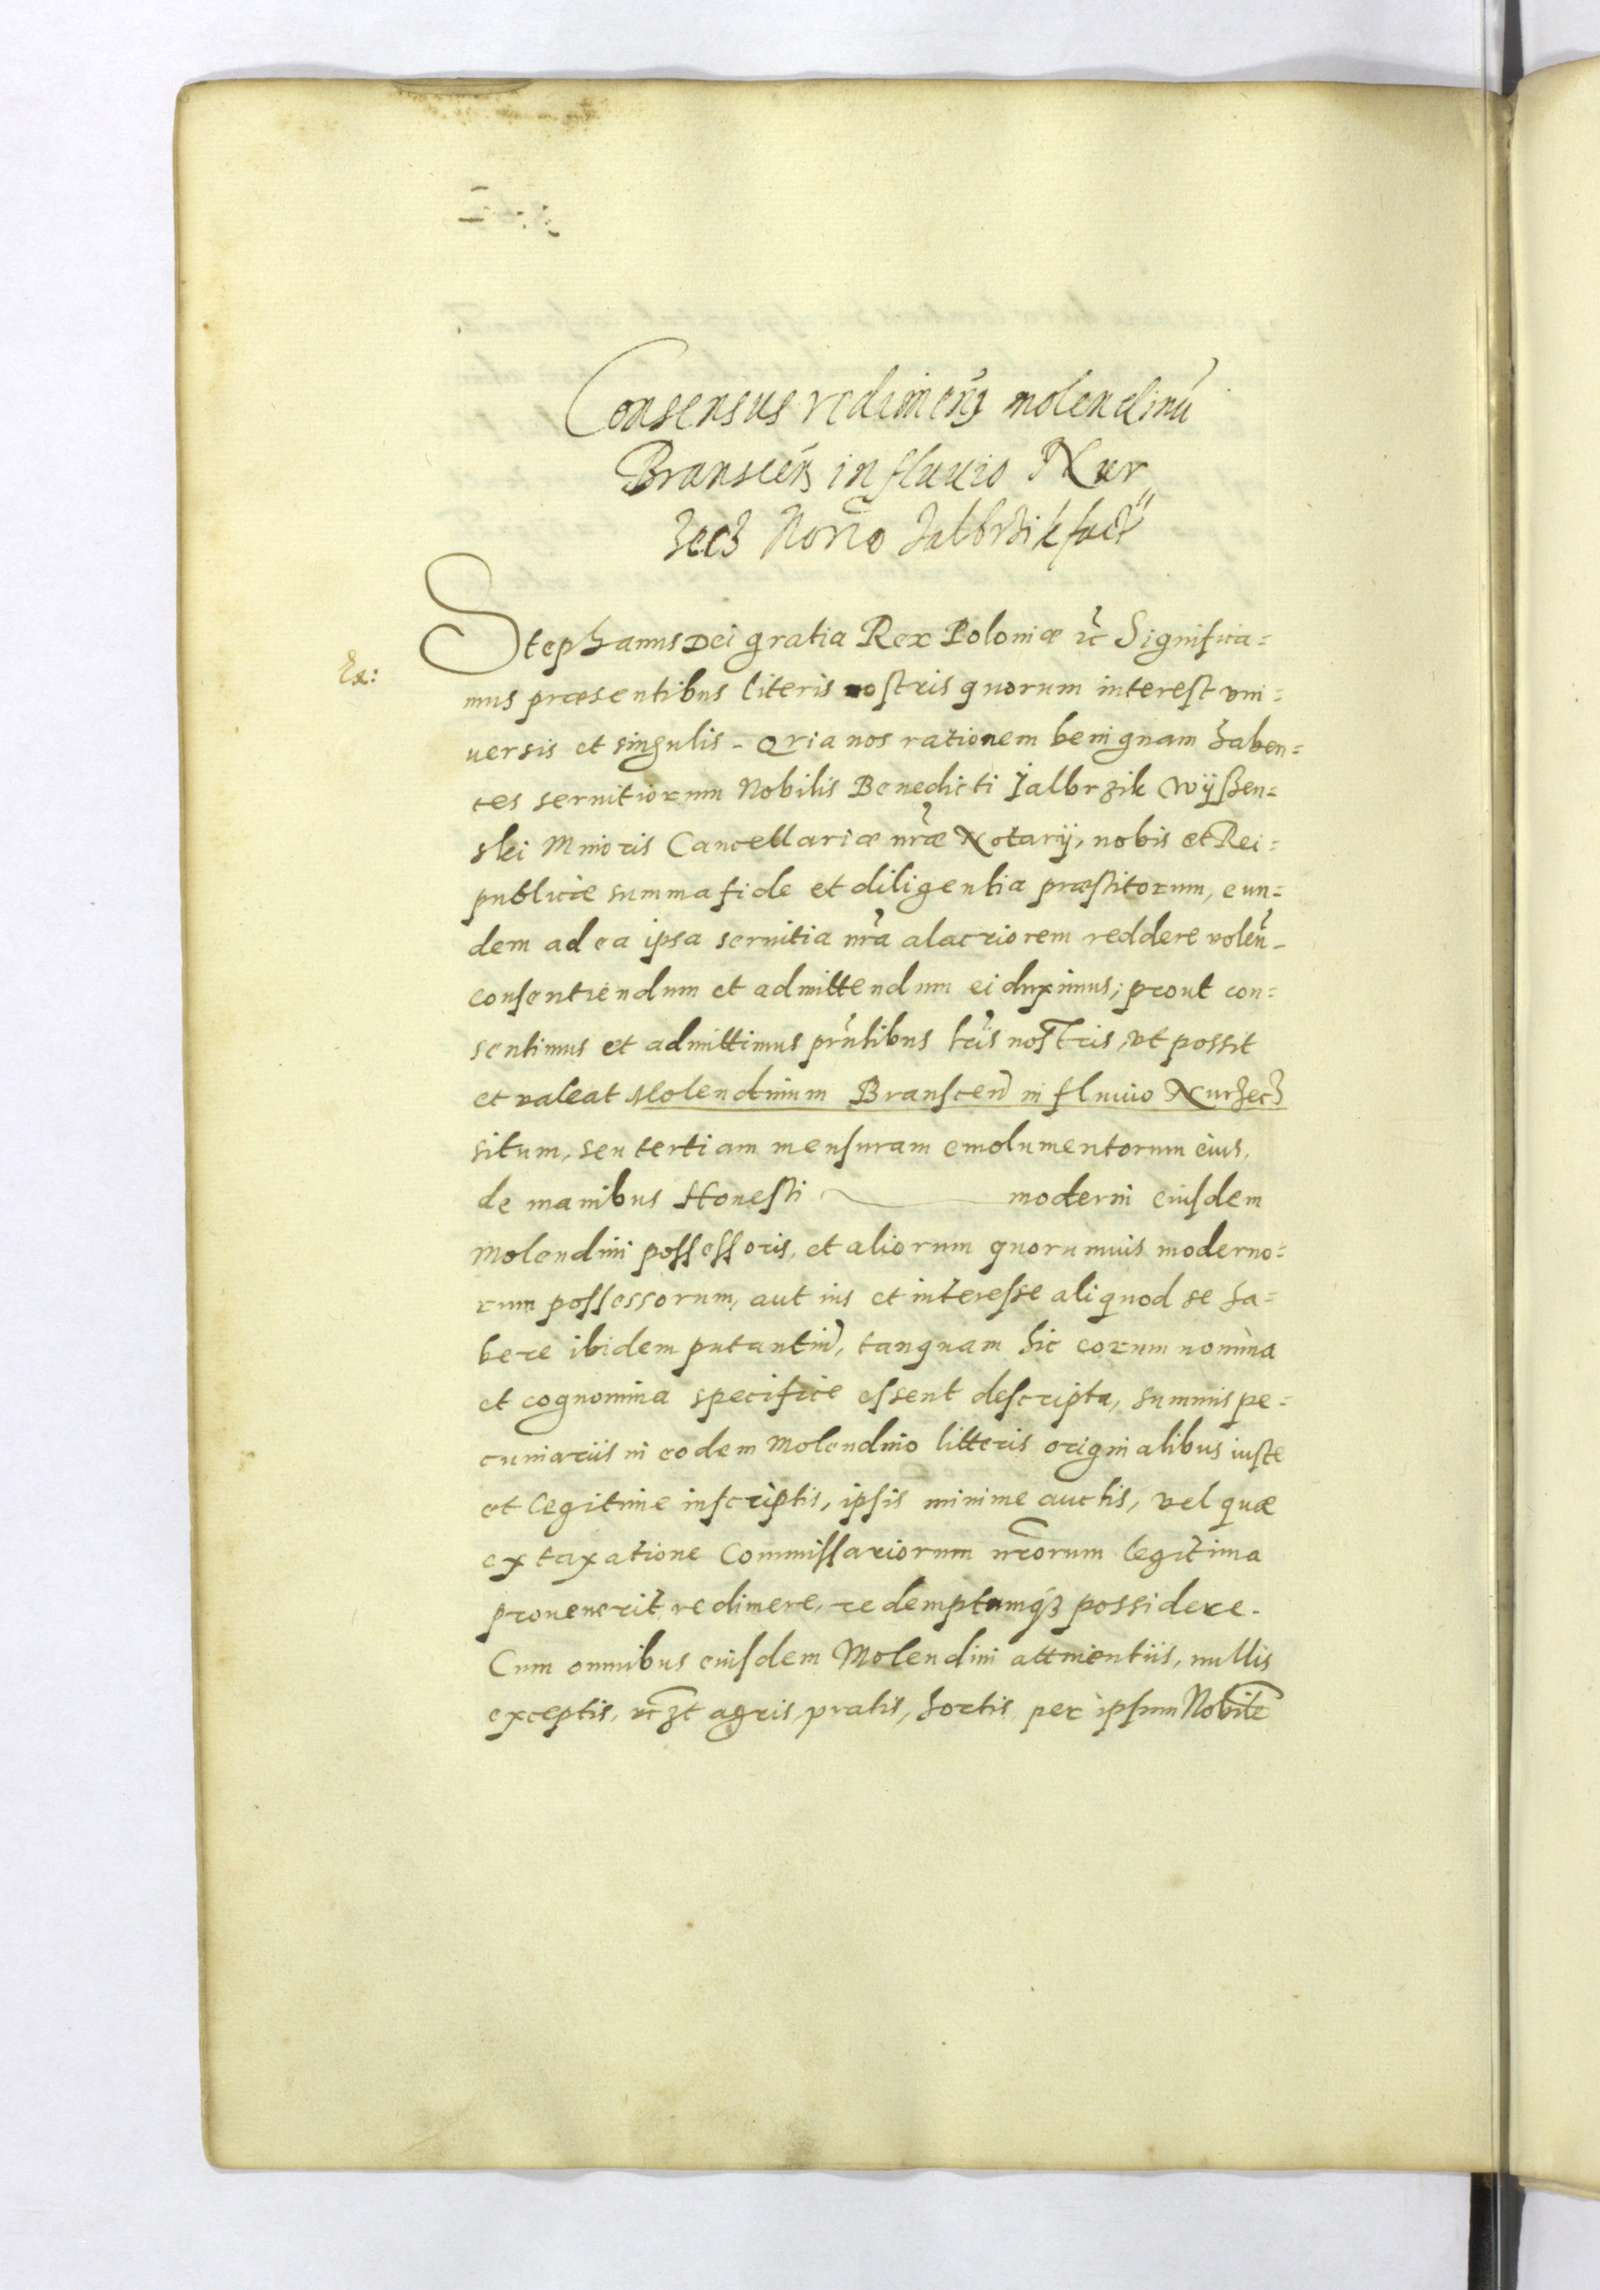 Consensus redimen̄ molendinū
Branscen̄ in fluuio Nur
zecz Norio Jalbrzik fact
Stephanus Dei gratia Rex Poloniæ ɾc̃ Significa=
Ex:
mus præsentibus literis nostris quorum interest vni=
uersis et singulis - Quia nos rationem benignam haben=
tes seruitiorum Nobilis Benedicti Jalbrzik Wyszen=
ski Minoris Cancellariæ nr̃æ Notarij, nobis et Rei=
publicæ summa fide et diligentia præstitorum, eun=
dem ad ea ipsa seruitia nr̃a alacriorem reddere volen̄-
consentiendum et admittendum ei duximus; prout con=
sentimus et admittimus pñtibus lr̃is nostris, vt possit
et valeat Molendinum Branscen̄ in fluuio Nurzecz
situm, seu tertiam mensuram emolumentorum eius,
de manibus Honesti moderni eiusdem
Molendini possessoris, et aliorum quorumuis moderno=
rum possessorum, aut ius et interesse aliquod se ha=
bere ibidem putantiū, tanquam hic eorum nomina
et cognomina specifice essent descripta, summis pe=
cuniariis in eodem Molendino litteris originalibus iuste
et legitime inscriptis, ipsis minime auctis, vel quæ
ex taxatione Commissariorum nr̃orum legitima
prouenerit, redimere, redemptumqꝫ possidere.
Cum omnibus eiusdem Molendini attinentiis, nullis
exceptis, agris, pratis, hortis per ipsum Nobilē